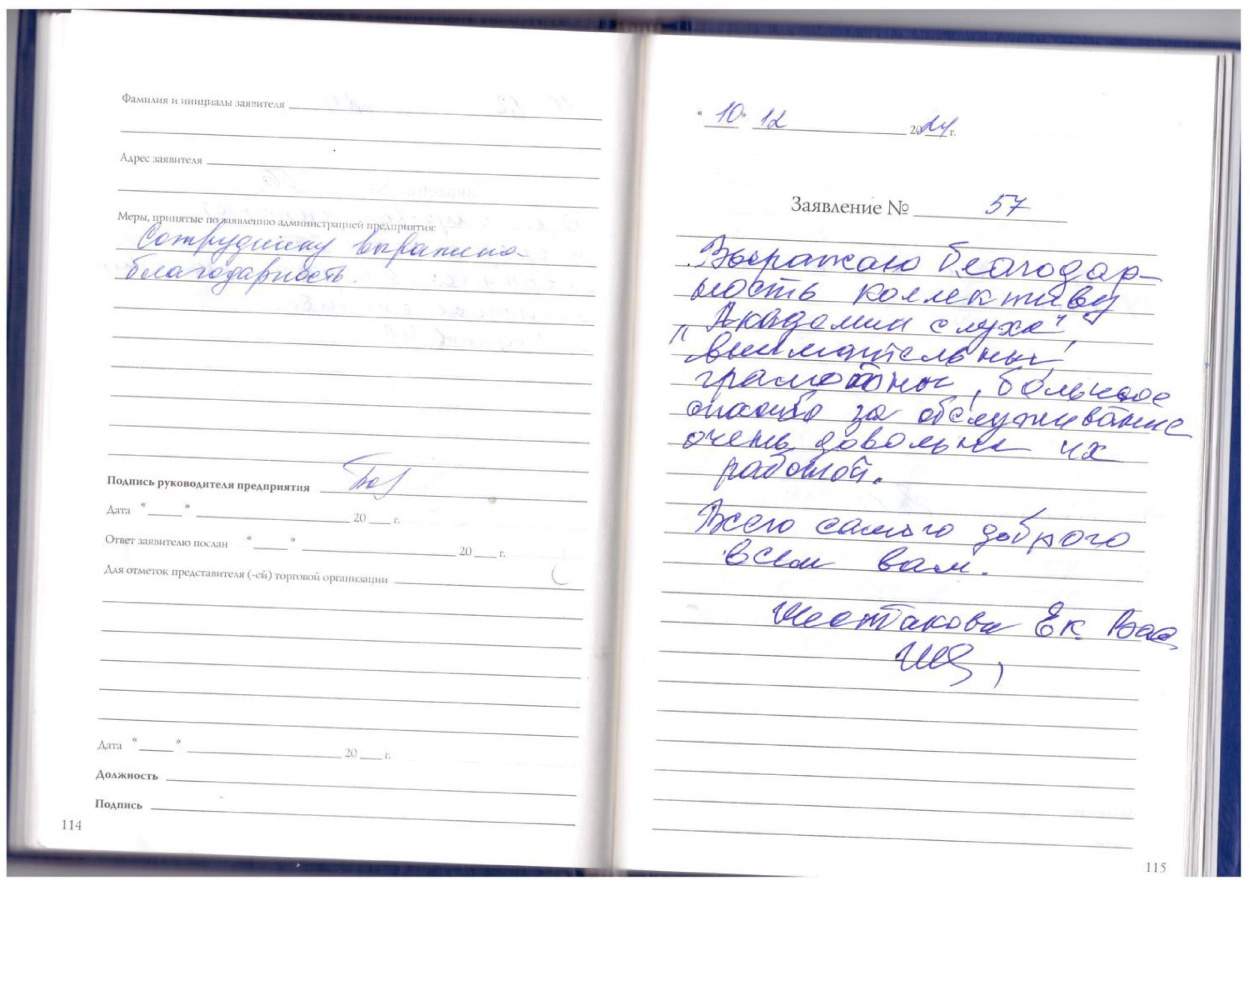 Фамилия и инициалы заявителя
Адрес заявителя
Меры, принятые по заявлению администрацией предприятия:
Сотруднику выражена
благодарность.
Подпись руководителя предприятия
Дата "____" ____ 20 ___ г.
Ответ заявителю послан "____" ____ 20 ___ г.
Для отметок представителя (-ей) торговой организации
Дата "____" ____ 20 ___ г.
Должность
Подпись
114
"10" 12 2024 г.
Заявление № 57
Выражаю благодар-
ность коллективу
"Академии слуха",
внимательны,
грамотны, большое
спасибо за обслуживание
очень довольна их
работой.
Всего самого доброго
всем вам.
Ек. Вас
115